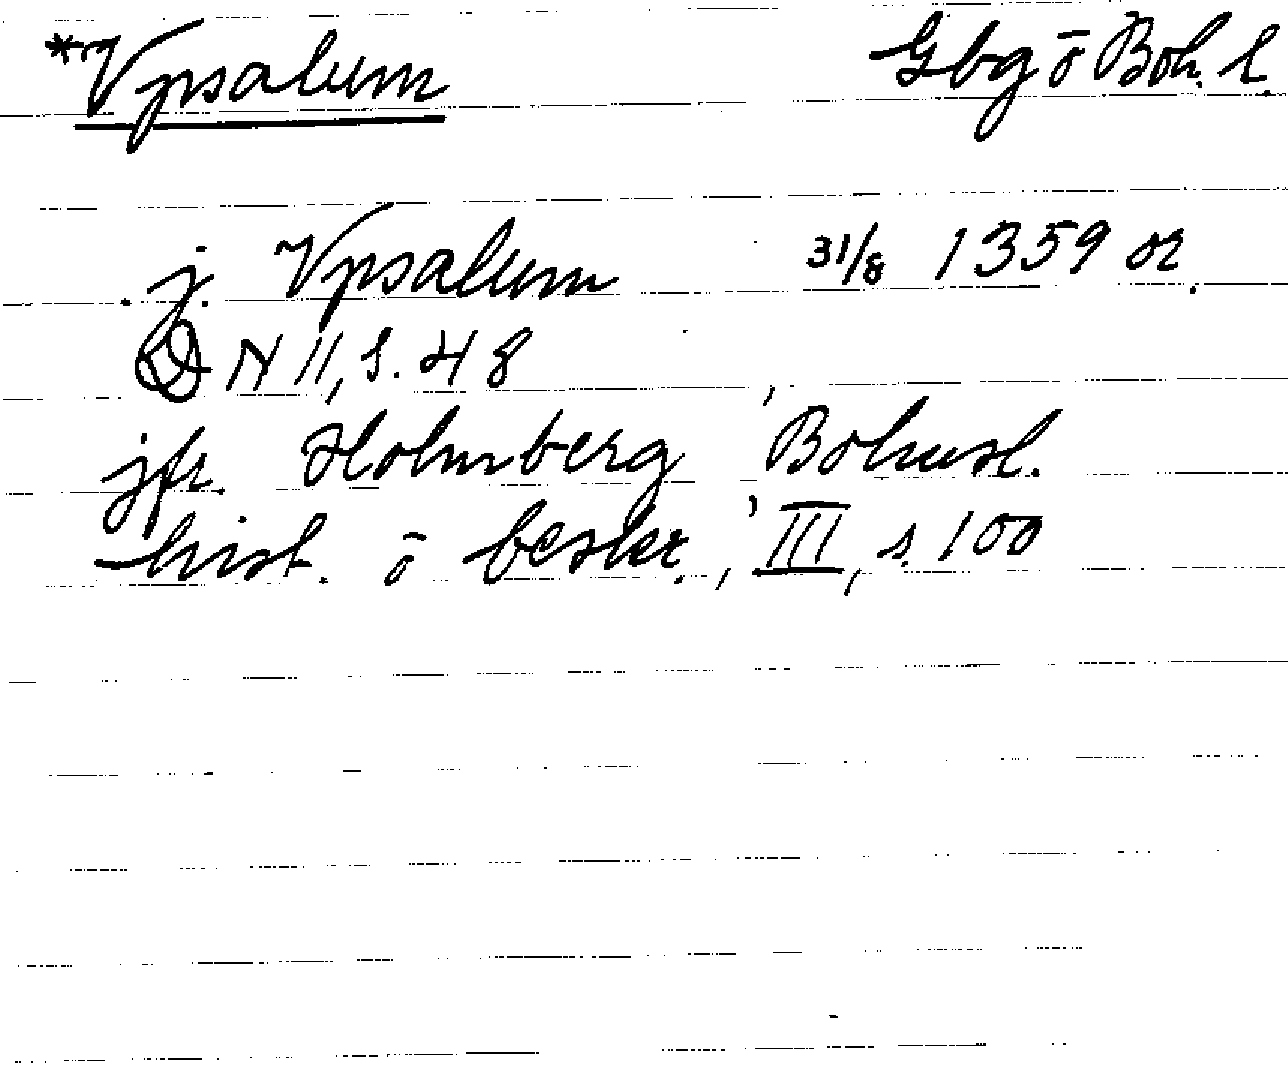 *Vpsalum Gbg ō Boh. l.
j. Vpsalum 31/8 1359 or.
DN II, s. 48
jfr. Holmberg, Bohusl.
hist. ō beskr., III, s. 100